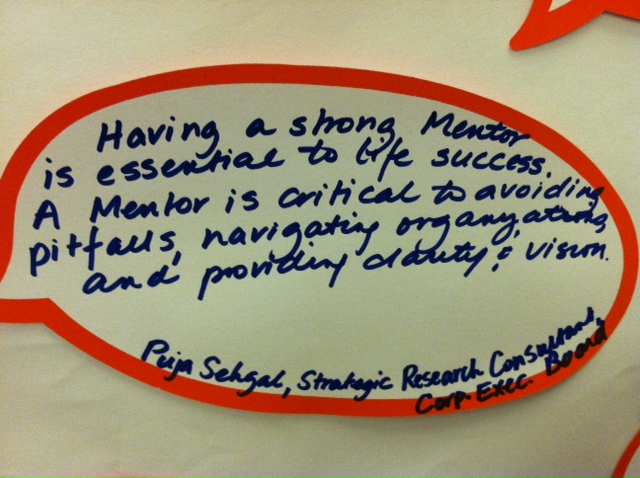 Having a strong Mentor
is essential to life success.
A Mentor is critical to avoiding
pitfalls, navigating organizations,
and providing clarity & vision.
Puja Sehgal, Strategic Research Consultant,
Corp. Exec. Board